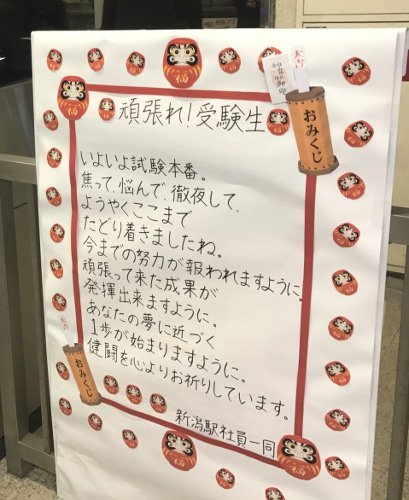 大吉
おみくじ
頑張れ！受験生
いよいよ試験本番。
焦って、悩んで、徹夜して、
ようやくここまで
たどり着きましたね。
今までの努力が報われますように。
頑張って来た成果が
発揮出来ますように。
あなたの夢に近づく
1歩が始まりますように。
健闘を心よりお祈りしています。
新潟駅社員一同
おみくじ
福
福
福
福